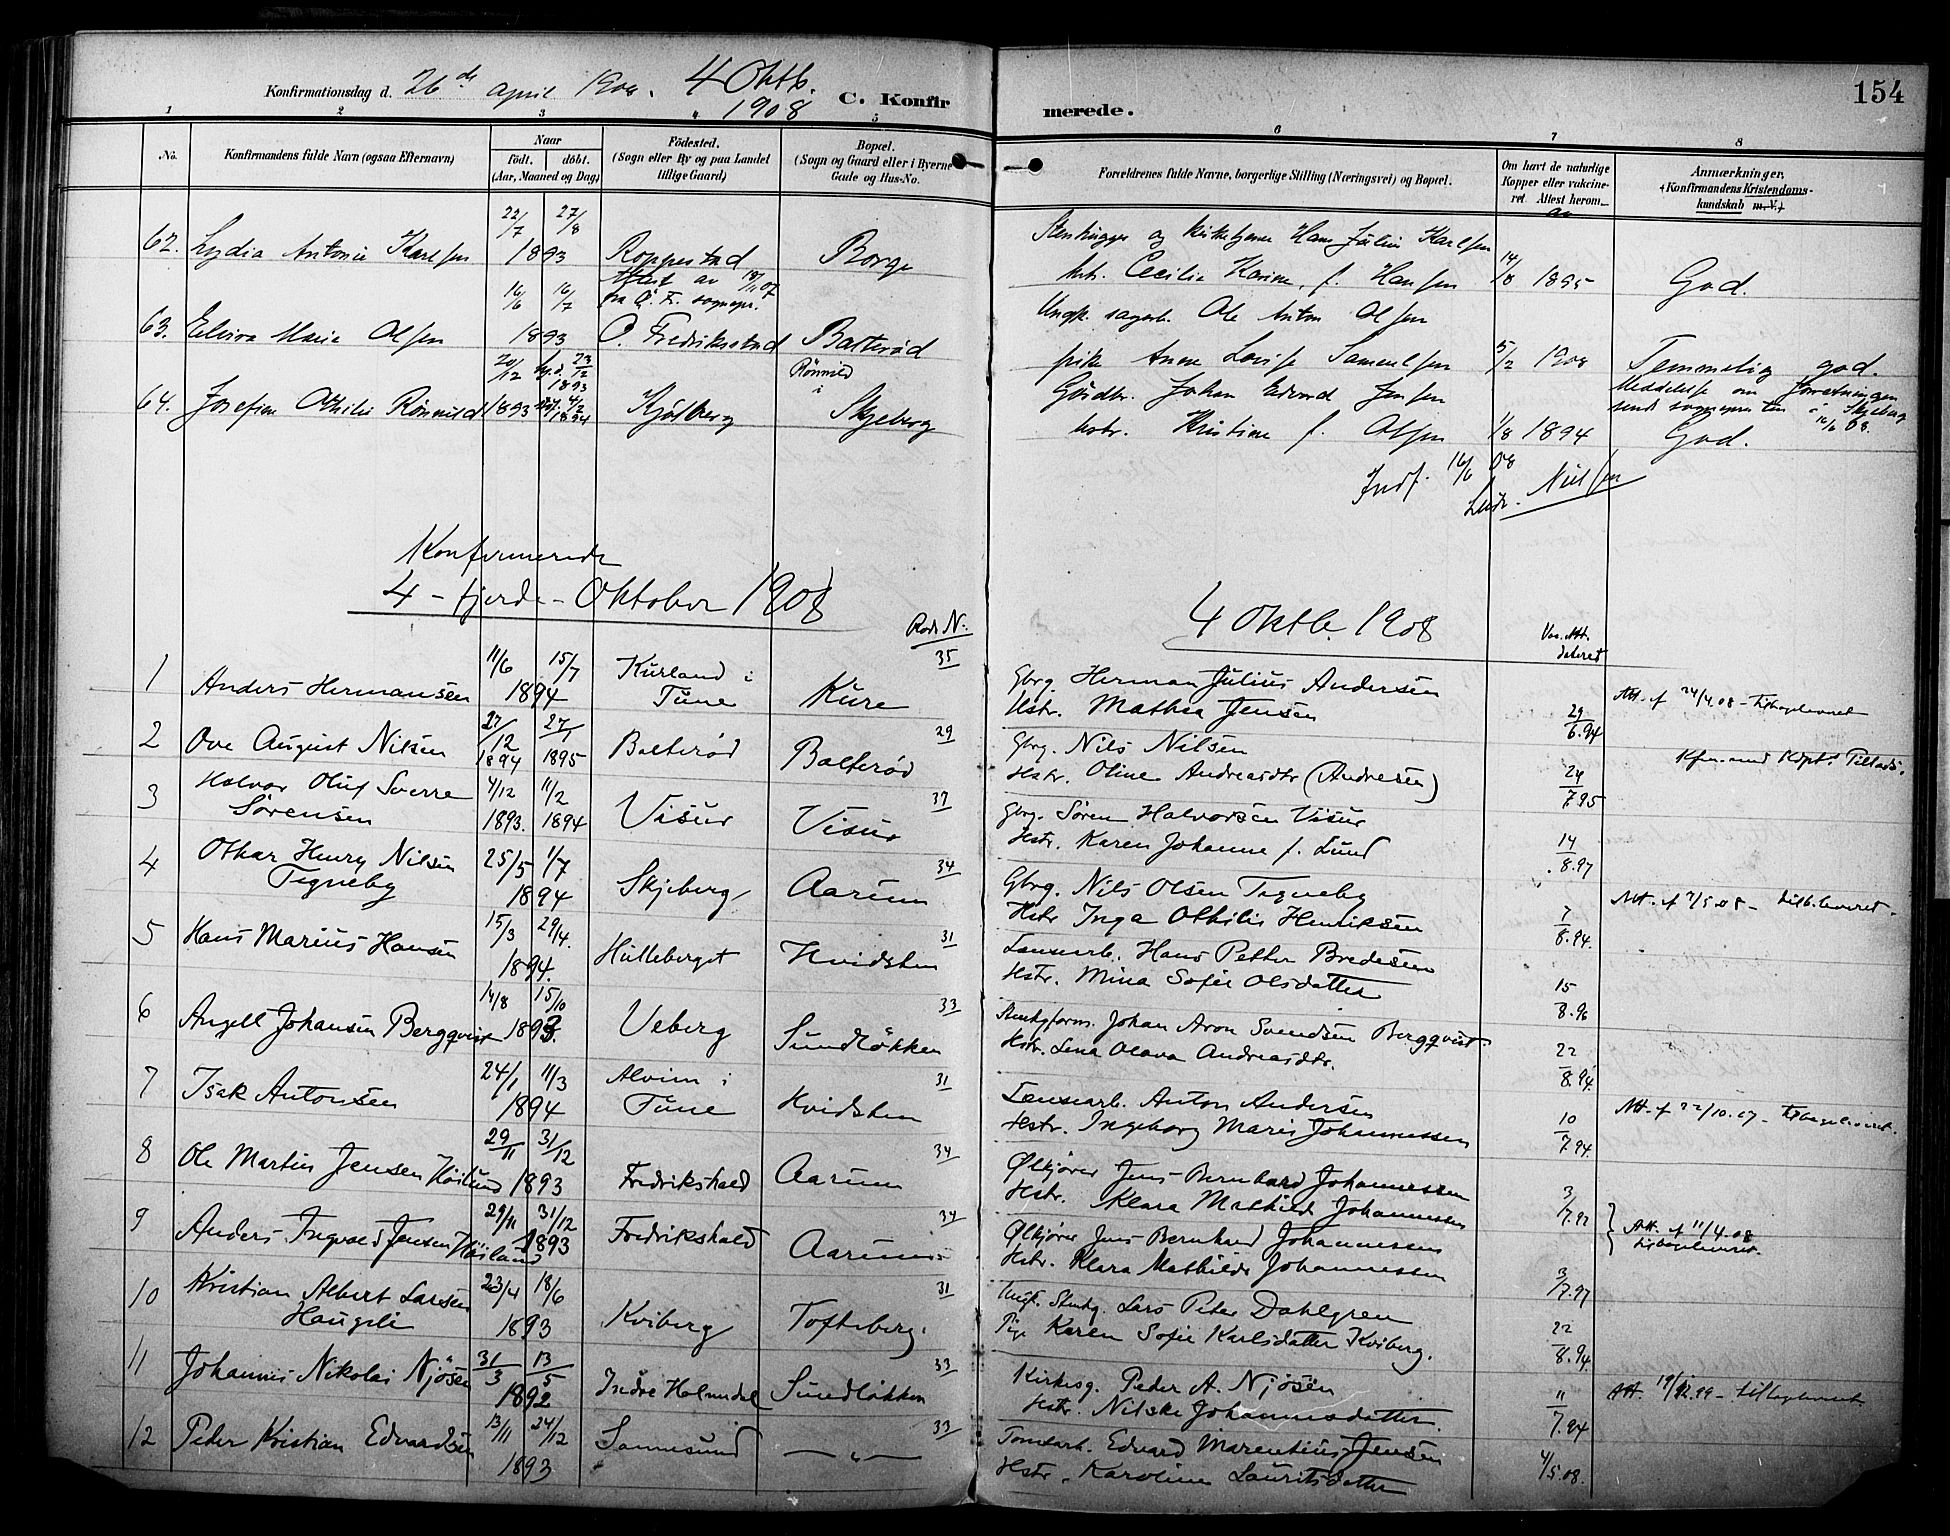 154
Konfirmationsdag d. 26de april 1908. 4 Oktb. 1908 C. Konfirmerede.
1 2 3 4 5 6 7 8
No. Konfirmandens fulde Navn (ogsaa Efternavn)
Naar født. døbt. (Aar, Maaned og Dag)
Fødested. (Sogn eller By og paa Landet tillige Gaard)
Bopæl. (Sogn og Gaard eller i Byerne Gade og Hus-No.
Forældrenes fulde Navne, borgerlige Stilling (Næringsvei) og Bopæl.
Om havt de naturlige Kopper eller vakcineret. Attest herom
Anmærkninger. (Konfirmandens Kristendomskundskab m. V.)
62. Lydia Antonie Karlsen 22/7 27/8 1893 Roppestad Borge
Stenhugger og kirketjener Hans Julius Karlsen
hstr. Cecilia Karine, f. Hansen 14/8 1895 God.
Attest av 18/11 07 fra Ø. F. sognepr.
63. Elvira Marie Olsen 16/6 16/7 1893 O. Fredriksstad Balterød
Ungk. sagarb. Ole Anton Olsen
pike Anne Lovise Samuelsen 5/2 1908 Temmelig god.
64. Josefine Othilie Rönnild 20/12 1893 hjd. 23/12 1893 4/2 1894 Kjølberg Rönnild i Skjeberg
Gårdbr. Johan Edvard Jensen
hstr. Kristine f. Olsen 1/8 1894 God.
Meddelelse om forretningen sendt sognepresten i Skjeberg 16/6 08.
Indf. 16/6 08 Ludv. Nielsen
Konfirmerede
4 - fjerde - Oktober 1908
4 Oktb. 1908
Rode N.
Vac. Att. dateret
1 Anders Hermansen 11/6 15/7 1894 Kurland i Tune Kure 35
Gbrg. Herman Julius Andersen
Hstr. Mathea Jensen 29/6.94 Att. af 24/4.08 - tilbageleveret
2 Ove August Nilsen 27/12 1894 27/1 1895 Balterød Balterød 29
Gbrg. Nils Nilsen
Hstr. Oline Andreasdtr (Andresen) 24/7.95 Kfm. med Kdpt.s Tillads.
3 Halvor Oluf Sverre Sørensen 4/12 1893. 11/2 1894 Visur Visur 37
Gbrg. Søren Halvorsen Visur
Hstr. Karen Johanne f. Lund 14/8.97
4 Othar Henry Nilsen Tegneby 25/5 1/7 1894 Skjeberg Aarum 34
Gbrg. Nils Olsen Tegneby
Hstr Inga Othilie Henriksen 7/8.94. Att. af 7/5.08 - tilb.leveret.
5 Hans Marius Hansen 15/3 29/4. 1894. Hulleberget Hvidsten 31
Løsearb. Hans Petter Bredesen
Hstr. Mina Sofie Olsdatter 15/8.96
6 Angell Johansen Bergqvist 14/8 15/10 1893. Veberg Sundløkken 33
Stenhgform. Johan Aron Svendsen Bergqvist
Hstr. Lena Olava Andreasdtr. 22/8.94.
7 Isak Antonsen 24/1 11/3 1894 Alvim i Tune Hvidsten 31
Løsearb. Anton Andersen
Hstr. Ingeborg Marie Johannessen 10/7.94. Att. af 22/10.07 - tilbageleveret.
8 Ole Martin Jensen Høiland 29/11 31/12 1893 Fredrikshald Aarum 34
Ølkjører Jens Bernhard Johannessen
Hstr. Klara Mathilde Johannessen 3/7.97
9 Anders Ingvald Jensen Høiland 29/11 31/12 1893 Fredrikshald Aarum 34
Ølkjører Jens Bernhard Johannessen
Hstr. Klara Mathilde Johannessen 3/7.97 Att. af 11/4.08 tilbageleveret.
10 Kristian Albert Larsen Haugeli 23/4 18/6 1893 Kviberg Tofteberg. 31
Ungk. Stenhg. Lars Peter Dahlgren
Pige Karen Sofie Karlsdatter Kviberg. 22/8.94.
11 Johannes Nikolai Njøsen 31/3 13/5 1892 Indre Holmedal Sundløkken 33
Kirkesg. Peder A. Njøsen
Hstr. Nilske Johannesdatter 11/7.94 Att. 19/12.99 - tilbageleveret
12 Peder Kristian Edvardsen 13/11 24/12 1893 Sannesund — „ — 33
Tomtearb. Edvard Marentius Jensen
Hstr. Karoline Lauritsdatter 4/5.08.